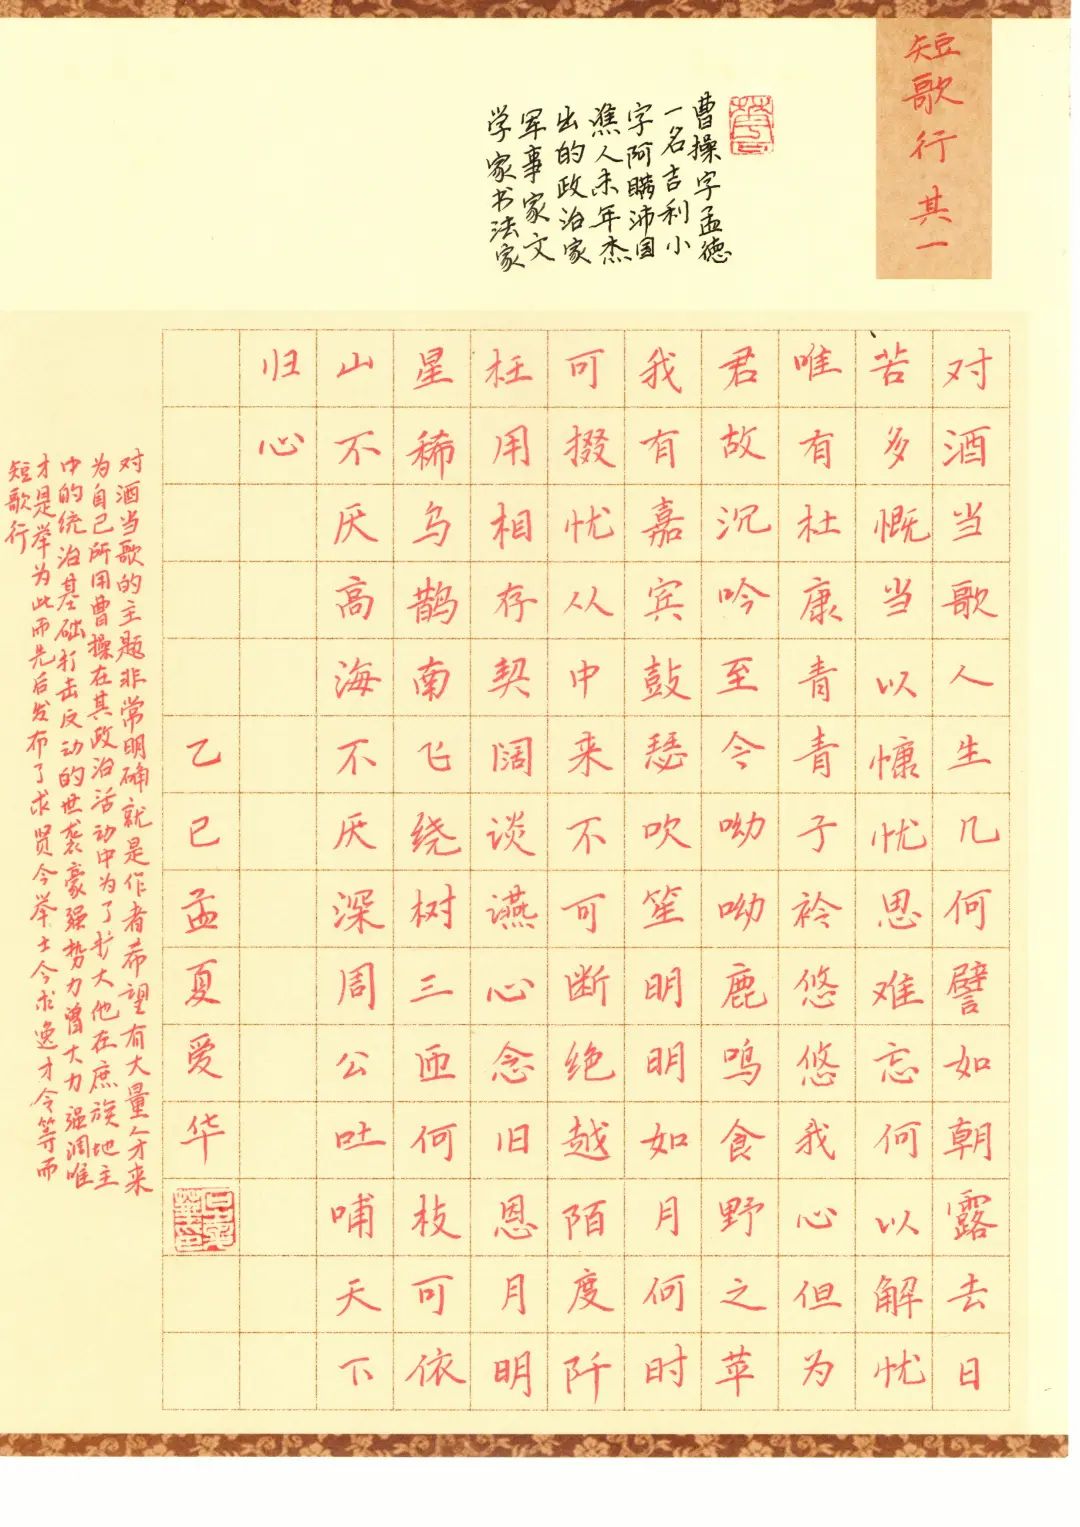 短歌行 其一
曹操字孟德
一名吉利小
字阿瞒沛国
谯人末年杰
出的政治家
军事家文
学家书法家
对酒当歌人生几何譬如朝露去日
苦多慨当以慷忧思难忘何以解忧
唯有杜康青青子衿悠悠我心但为
君故沉吟至今呦呦鹿鸣食野之苹
我有嘉宾鼓瑟吹笙明明如月何时
可掇忧从中来不可断绝越陌度阡
枉用相存契阔谈䜩心念旧恩月明
星稀乌鹊南飞绕树三匝何枝可依
山不厌高海不厌深周公吐哺天下
归心
乙巳孟夏爱华
对酒当歌的主题非常明确就是作者希望有大量人才来
为自己所用曹操在其政治活动中为了扩大他在庶族地主
中的统治基础打击反动的世袭豪强势力曾大力强调唯
才是举为此而先后发布了求贤令举士令求逸才令等而
短歌行